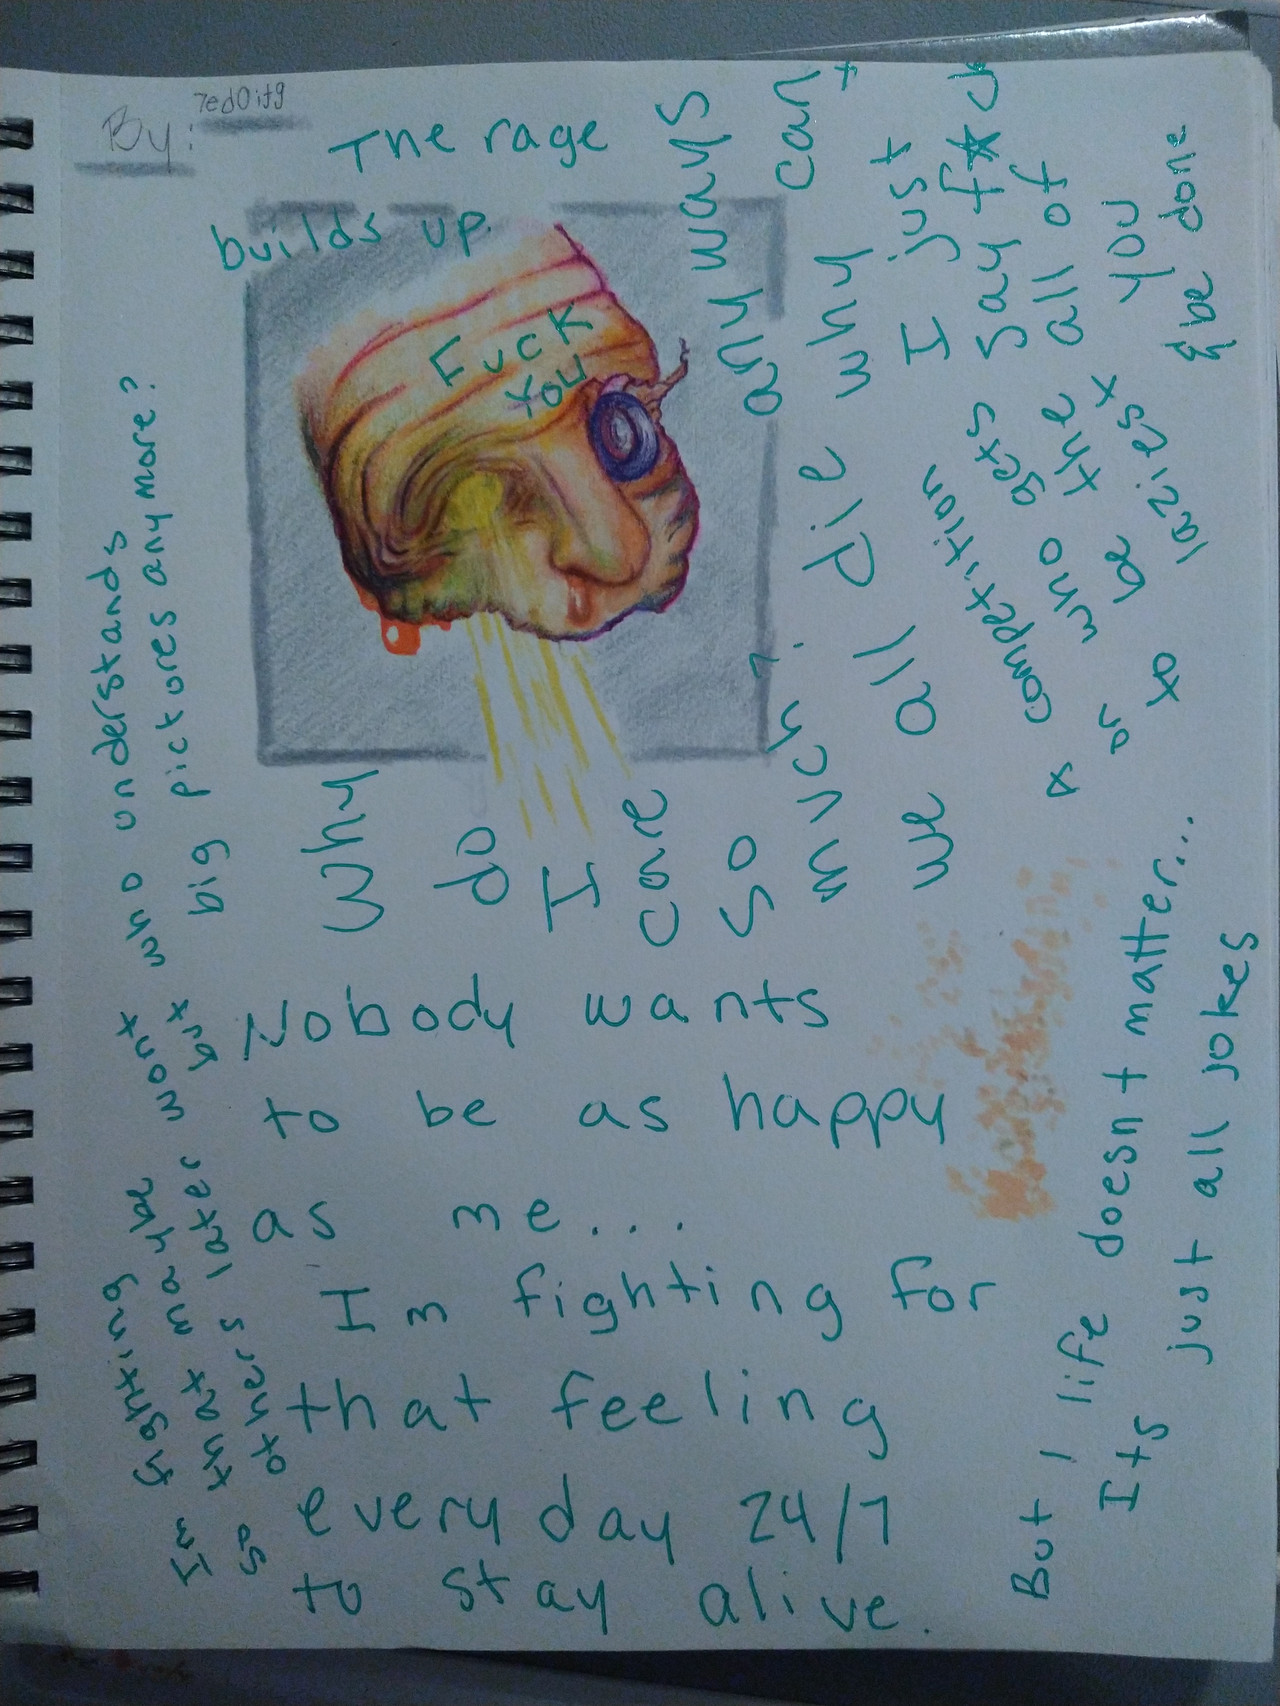 By: 7ed0itg
The rage
builds up.
Fuck
You
Why
do
I
care
so
much?
any ways
we all die why can't
I just
say f★ck
all of
you
& be done
a competition
or who gets
to be the
laziest
Nobody wants
to be as happy
as me...
I'm fighting for
that feeling
every day 24/7
to stay alive.
But 1 life doesn't matter...
Its just all jokes
Im fighting
so that maybe
others later wont
but who understands
big pictures anymore?